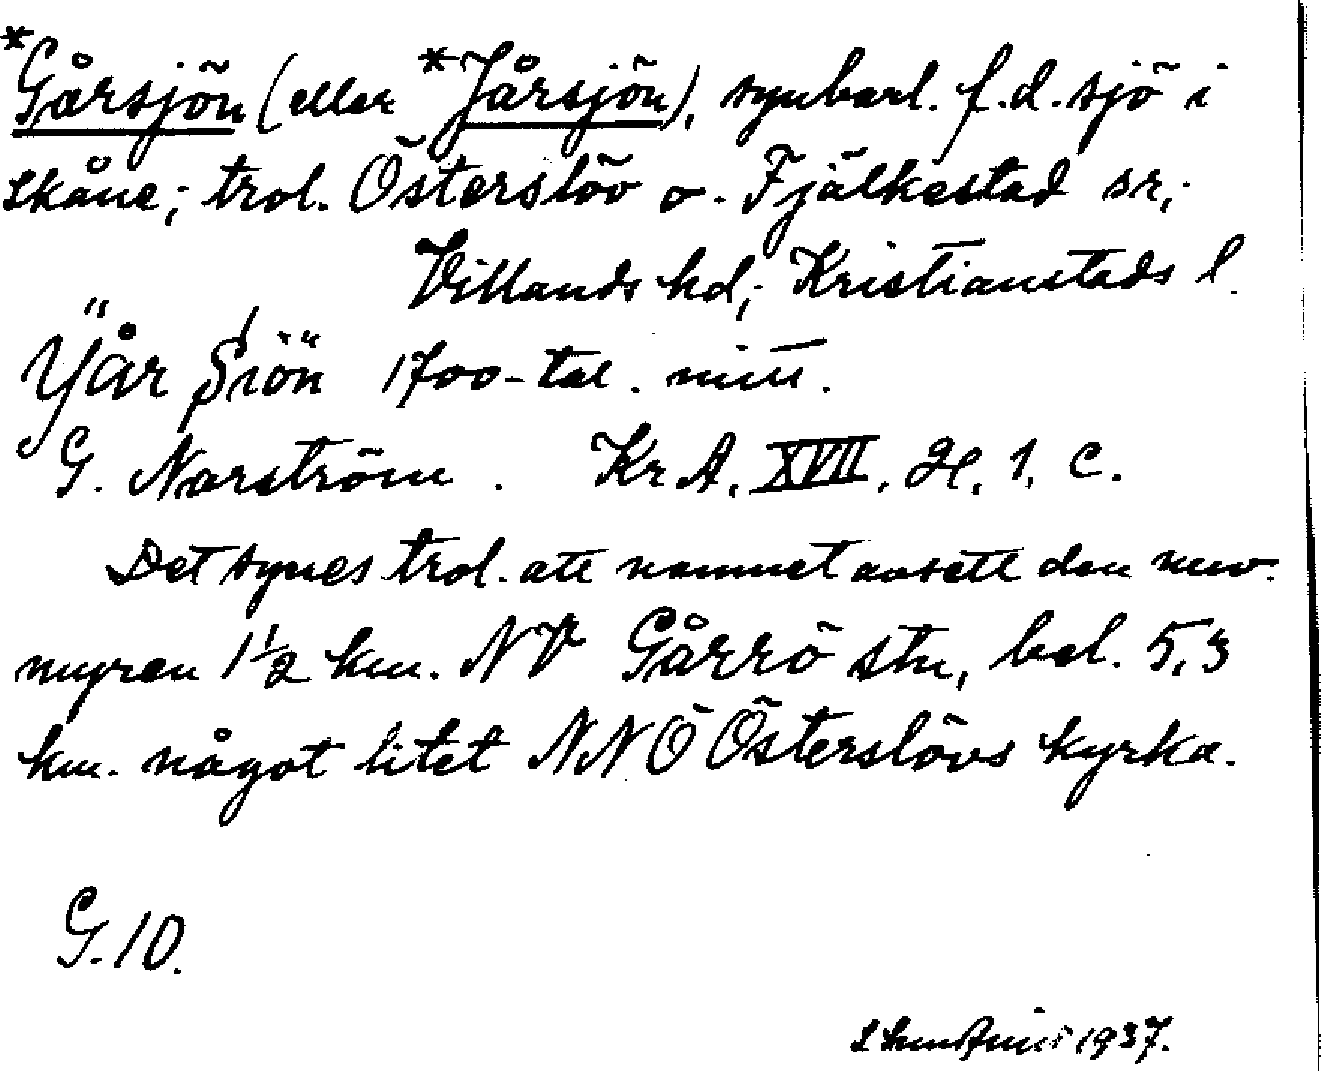 *Gårsjön (eller *Jårsjön), synbarl. f.d. sjö i
Skåne; trol. Österslöv o. Fjälkestad sr,
Villands hd, Kristianstads l.
Ÿår Siön 1700-tal. mitt.
G. Narström. Kr A. XVII. H. 1. C.
Det synes trol. att namnet avsett den nuv.
myren 1 1/2 km. NV Gårrö stn, bel. 5,3
km. något litet NNÖ Österslövs kyrka.
G. 10.
1937.